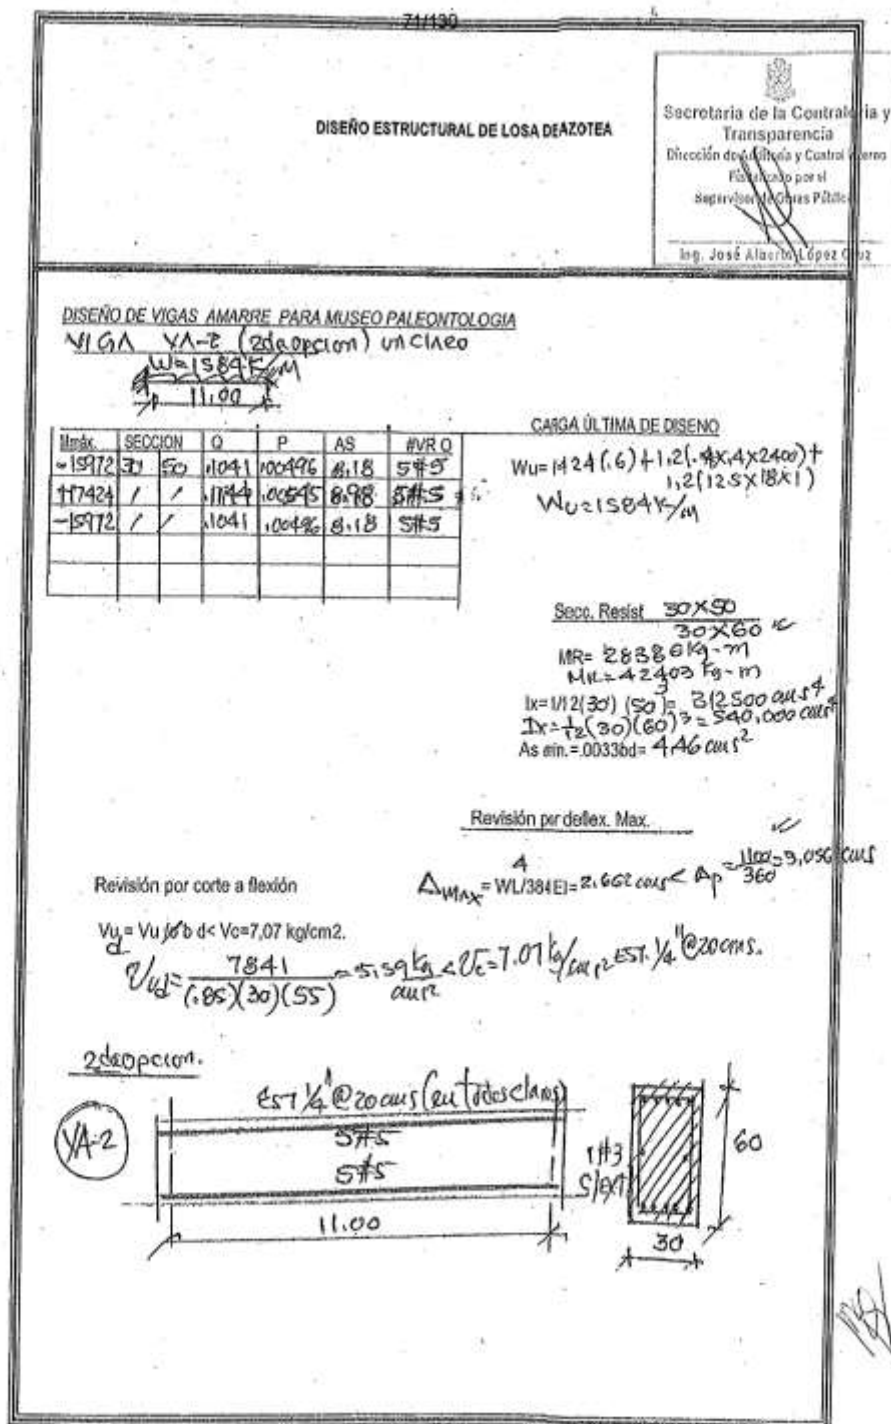 71/130
DISEÑO ESTRUCTURAL DE LOSA DEAZOTEA
Secretaria de la Contraloria y
Transparencia
Dirección de Auditoría y Control Interno
Fiscalizado por el
Supervisor de Obras Públicas
Ing. José Alberto López Cruz
DISEÑO DE VIGAS AMARRE PARA MUSEO PALEONTOLOGIA
VIGA VA-2 (2da opcion) un claro
W=1584K/M
11.00
Mmáx. SECCION Q P AS #VR O
-15972 30 50 .1041 .00496 8.18 5#5
+17424 / / .1144 .00545 8.98 5#5
-15972 / / .1041 .00496 8.18 5#5
CARGA ÚLTIMA DE DISENO
Wu= 1424(.6)+1.2(.4x.4x2400)+
1.2(125x18x1)
Wu=1584K/m
Secc. Resist 30X50
30X60
MR= 28386 Kg-m
MR=42403 Kg-m
Ix=1/12(30) (50)3= 312500 cms4
Ix=1/12(30)(60)3=540,000 cms4
As min.=.0033bd= 4.46 cms2
Revisión por deflex. Max.
ΔMAX=WL4/384EI=2.662 cms < Δp=1100/360=3,056 cms
Revisión por corte a flexión
Vud= Vu /ø b d< Vc=7,07 kg/cm2.
Vud=7841/(.85)(30)(55)=5.59 kg/cms2 <Vc=7.07 kg/cm2 EST. 1/4" @20cms.
2da opcion.
VA-2
EST 1/4" @20cms (en todos claros)
5#5
5#5
11.00
1#3
S/ext
60
30